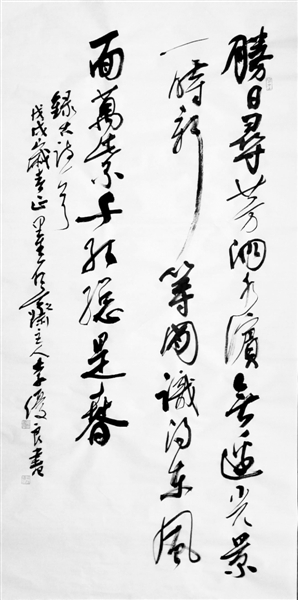 勝日尋芳泗水濱無邊光景
一時新等閒識得東風
面萬紫千紅總是春
錄古詩一首
戊戌歲春齋主人李優良書